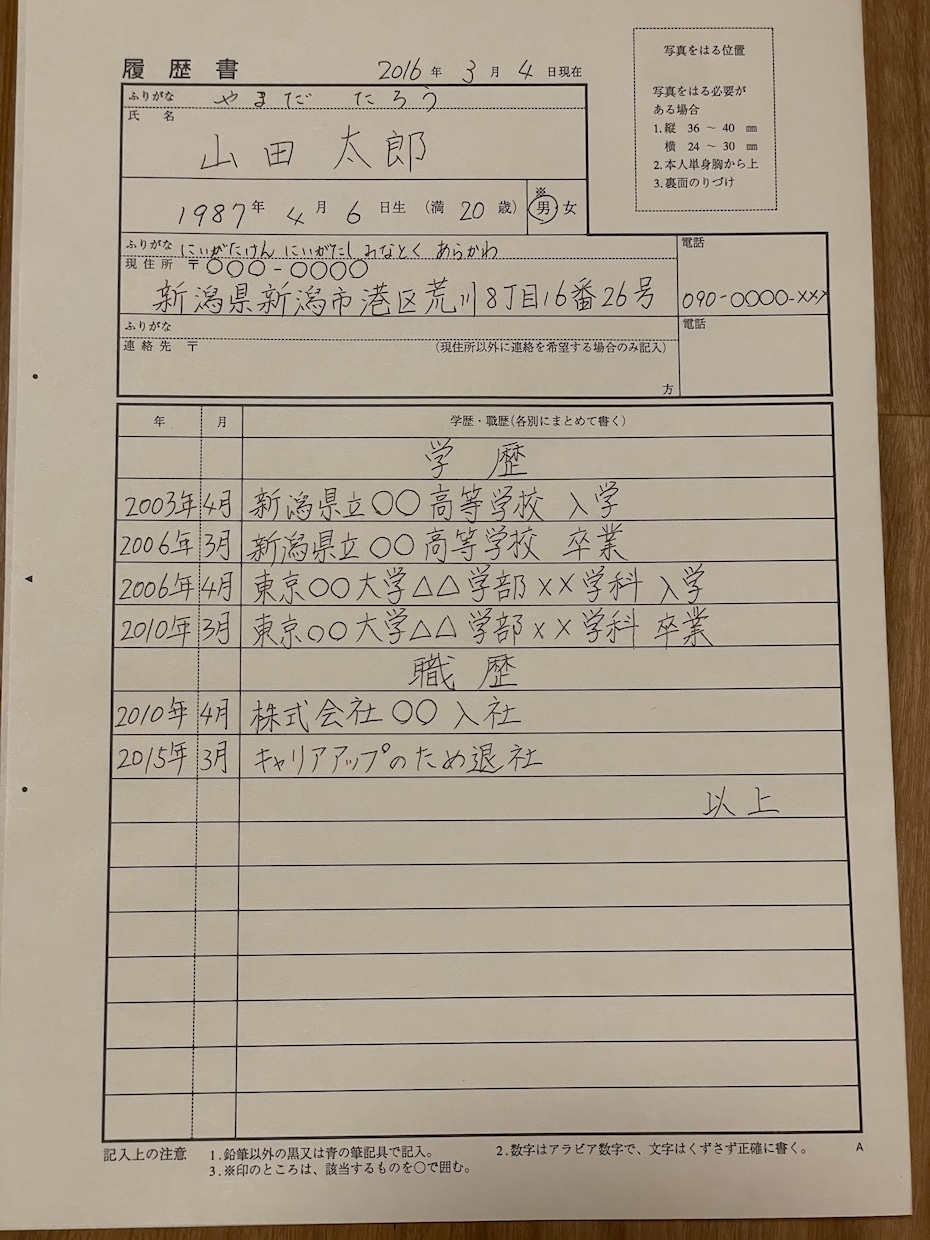 履歴書 2016年 3月 4日現在
写真をはる位置
写真をはる必要が
ある場合
1.縦 36 ～ 40 ㎜
横 24 ～ 30 ㎜
2.本人単身胸から上
3.裏面のりづけ
ふりがな やまだ たろう
氏 名
山田 太郎
1987年 4月 6日生 (満 20 歳) ※ 男・女
ふりがな にいがたけん にいがたし みなとく あらかわ
電話
現住所 〒〇〇〇-〇〇〇〇
新潟県新潟市港区荒川8丁目16番26号
090-〇〇〇〇-×××
ふりがな
電話
連絡先 〒 (現住所以外に連絡を希望する場合のみ記入)
方
年 月 学歴・職歴(各別にまとめて書く)
学 歴
2003年 4月 新潟県立〇〇高等学校 入学
2006年 3月 新潟県立〇〇高等学校 卒業
2006年 4月 東京〇〇大学△△学部××学科 入学
2010年 3月 東京〇〇大学△△学部××学科 卒業
職 歴
2010年 4月 株式会社〇〇入社
2015年 3月 キャリアアップのため退社
以上
記入上の注意 1.鉛筆以外の黒又は青の筆記具で記入。 2.数字はアラビア数字で、文字はくずさず正確に書く。 A
3.※印のところは、該当するものを〇で囲む。